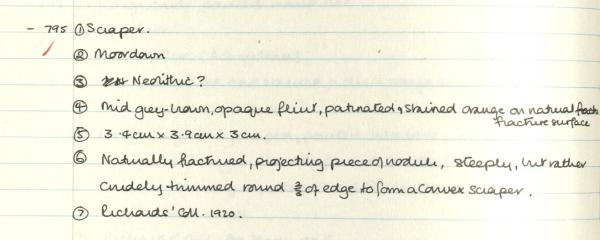 - 795 ① Scraper.
② Moordown
③ Neolithic?
④ Mid grey-brown, opaque flint, patinated & stained orange on natural
fracture surface
⑤ 3.4cm x 3.9cm x 3cm.
⑥ Naturally fractured, projecting piece of nodule, steeply, but rather
crudely trimmed round ⅔ of edge to form a convex scraper.
⑦ Richards' Coll. 1920.